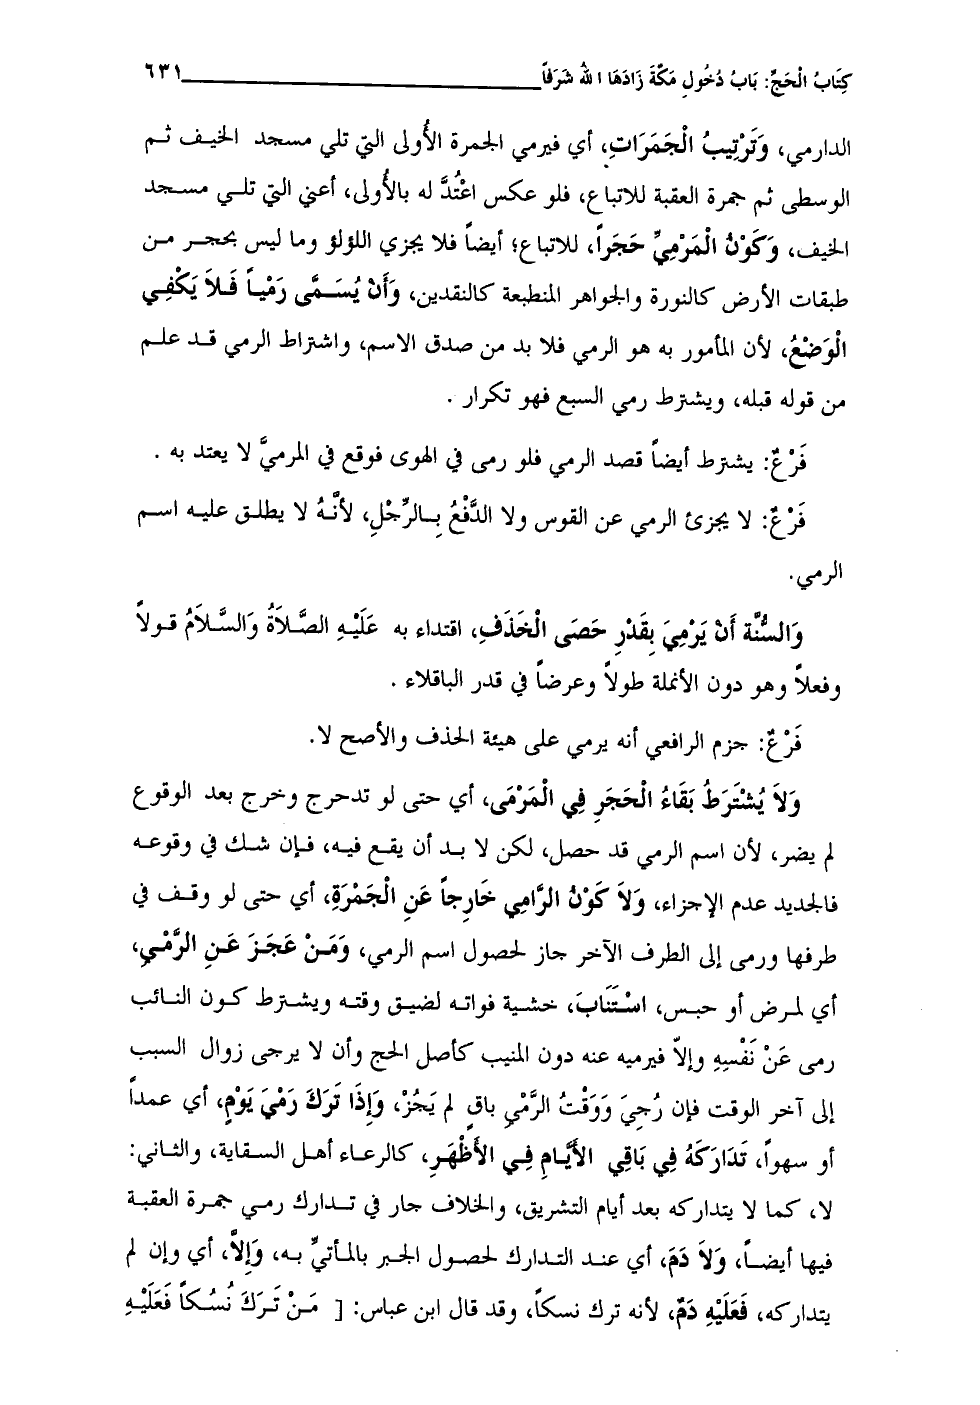 كِتَابُ الْحَجِّ: بَابُ دُخُولِ مَكَّةَ زَادَهَا ا لله شَرَفاً ٦٣١
الدارمي، وَتَرْتِيبُ الْجَمَرَاتِ، أي فيرمي الجمرة الأُولى التي تلي مسجد الخيف ثم
الوسطى ثم جمرة العقبة للاتباع، فلو عكس اعْتُدَّ له بالأُولى، أعني التي تلي مسجد
الخيف، وَكَوْنُ الْمَرْمِيِّ حَجَراً، للاتباع؛ أيضاً فلا يجزي اللؤلؤ وما ليس بحجر من
طبقات الأرض كالنورة والجواهر المنطبعة كالنقدين، وَأَنْ يُسَمَّى رَمْياً فَلاَ يَكْفِي
الْوَضْعُ، لأن المأمور به هو الرمي فلا بد من صدق الاسم، واشتراط الرمي قد علم
من قوله قبله، ويشترط رمي السبع فهو تكرار .
فَرْعٌ: يشترط أيضاً قصد الرمي فلو رمى في الهوى فوقع في المرميَّ لا يعتد به .
فَرْعٌ: لا يجزئ الرمي عن القوس ولا الدَّفْعُ بِالرِّجْلِ، لأنَّهُ لا يطلق عليه اسم
الرمي.
وَالسُّنَّة أَنْ يَرْمِيَ بِقَدْرِ حَصَى الْخَذَفِ، اقتداء به عَلَيْهِ الصَّلاَةُ وَالسَّلاَمُ قولاً
وفعلاً وهو دون الأنملة طولاً وعرضاً في قدر الباقلاء .
فَرْعٌ: جزم الرافعي أنه يرمي على هيئة الخذف والأصح لا.
وَلاَ يُشْتَرَطُ بَقَاءُ الْحَجَرِ فِي الْمَرْمَى، أي حتى لو تدحرج وخرج بعد الوقوع
لم يضر، لأن اسم الرمي قد حصل، لكن لا بد أن يقع فيه، فإن شك في وقوعه
فالجديد عدم الإجزاء، وَلاَ كَوْنُ الرَّامِي خَارِجاً عَنِ الْجَمْرَةِ، أي حتى لو وقف في
طرفها ورمى إلى الطرف الآخر جاز لحصول اسم الرمي، وَمَنْ عَجَزَ عَنِ الرَّمْيِ،
أي لمرض أو حبس، اسْتَنَابَ، خشية فواته لضيق وقته ويشترط كون النائب
رمى عَنْ نَفْسِهِ وإلاّ فيرميه عنه دون المنيب كأصل الحج وأن لا يرجى زوال السبب
إلى آخر الوقت فإن رُجِيَ وَوَقْتُ الرَّمْيِ باقٍ لم يَجُزْ، وَإِذَا تَرَكَ رَمْيَ يَوْمٍ، أي عمداً
أو سهواً، تَدَارَكَهُ فِي بَاقِي الأَيَّامِ فِي الأَظْهَرِ، كالرعاء أهل السقاية، والثاني:
لا، كما لا يتداركه بعد أيام التشريق، والخلاف جار في تدارك رمي جمرة العقبة
فيها أيضاً، وَلاَ دَمَ، أي عند التدارك لحصول الجبر بالمأتيِّ به، وَإِلاَّ، أي وإن لم
يتداركه، فَعَلَيْهِ دَمٌ، لأنه ترك نسكاً، وقد قال ابن عباس: [ مَنْ تَرَكَ نُسُكاً فَعَلَيْهِ